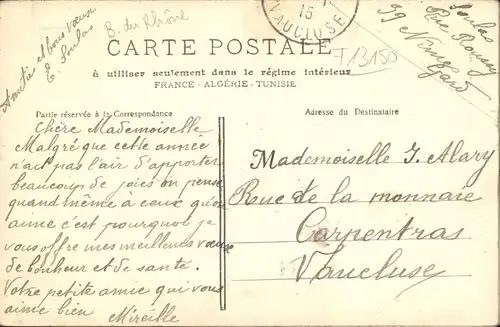 Amitiés et bons vœux
E. Soulas
B. du Rhône
15
VAUCLUSE
F13150
Soulas
Rue Roussy
39 Nimes
Gard
CARTE POSTALE
à utiliser seulement dans le régime intérieur
FRANCE - ALGÉRIE - TUNISIE
Partie réservée à la Correspondance
Adresse du Destinataire
Chère Mademoiselle
Malgré que cette année
n'ait pas l'air d'apporter
beaucoup de joies on pense
quand même a ceux qu'on
aime c'est pourquoi je
vous offre mes meilleurs vœux
de bonheur et de santé.
Votre petite amie qui vous
aime bien Mireille
Mademoiselle J. Alary
Rue de la monnaie
Carpentras
Vaucluse